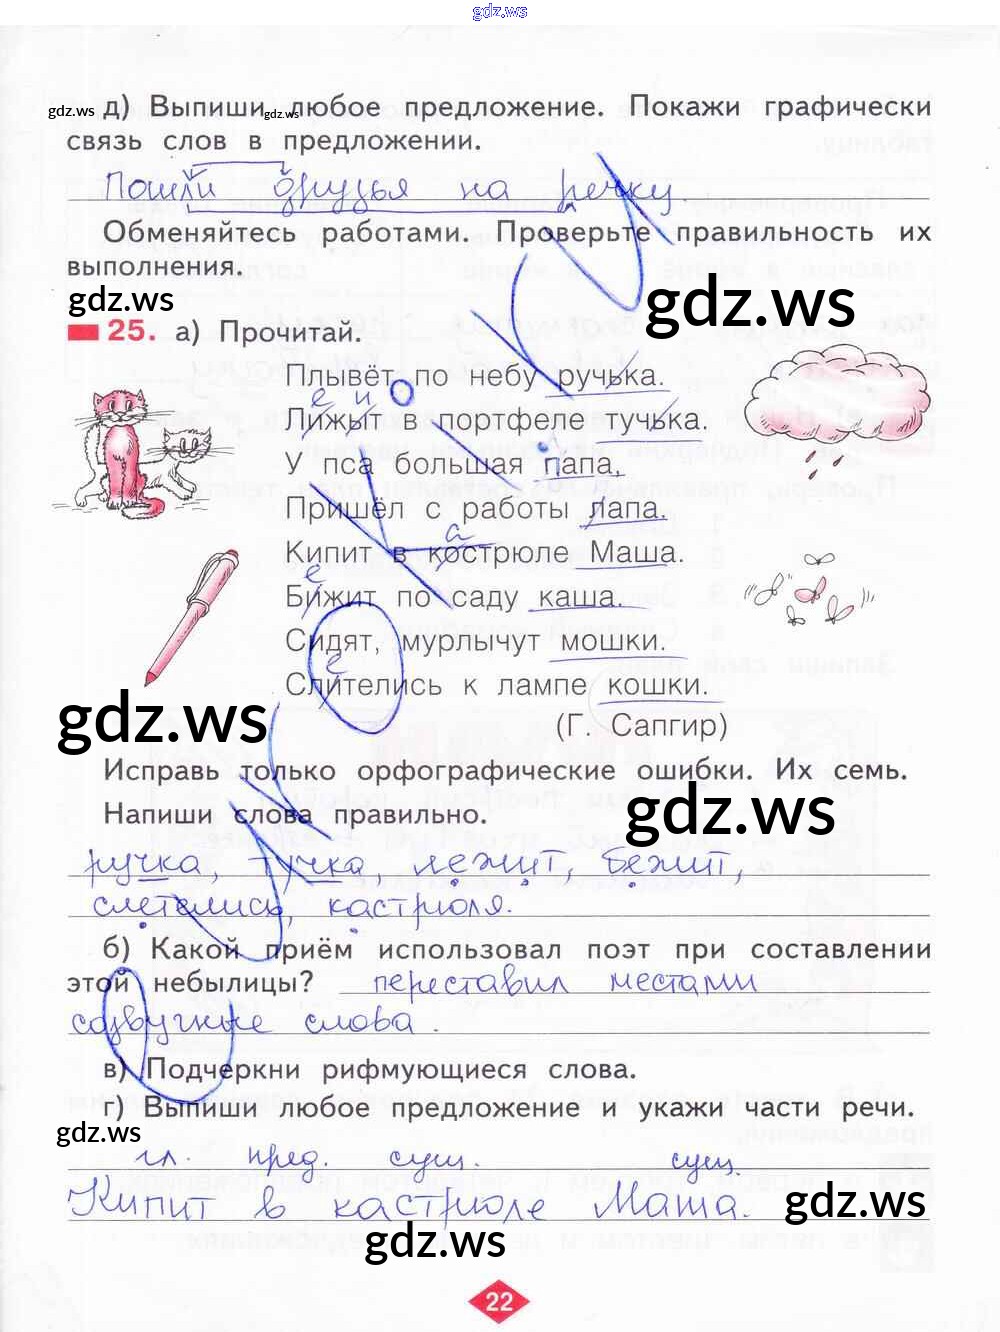 gdz.ws
д) Выпиши любое предложение. Покажи графически
gdz.ws gdz.ws
связь слов в предложении.
Пошли друзья на речку
Обменяйтесь работами. Проверьте правильность их
выполнения.
gdz.ws
gdz.ws
25. а) Прочитай.
Плывёт по небу ручька.
е и
Лижыт в портфеле тучька.
У пса большая папа.
Пришёл с работы лапа.
а
Кипит в кострюле Маша.
е
Бижит по саду каша.
Сидят, мурлычут мошки.
е
Слителись к лампе кошки.
(Г. Сапгир)
gdz.ws
Исправь только орфографические ошибки. Их семь.
gdz.ws
Напиши слова правильно.
ручка, тучка, лежит, бежит,
слетелись, кастрюля.
б) Какой приём использовал поэт при составлении
этой небылицы? переставил местами
созвучные слова.
в) Подчеркни рифмующиеся слова.
г) Выпиши любое предложение и укажи части речи.
gdz.ws
гл. пред. сущ. сущ.
Кипит в кастрюле Маша.
gdz.ws
gdz.ws
22